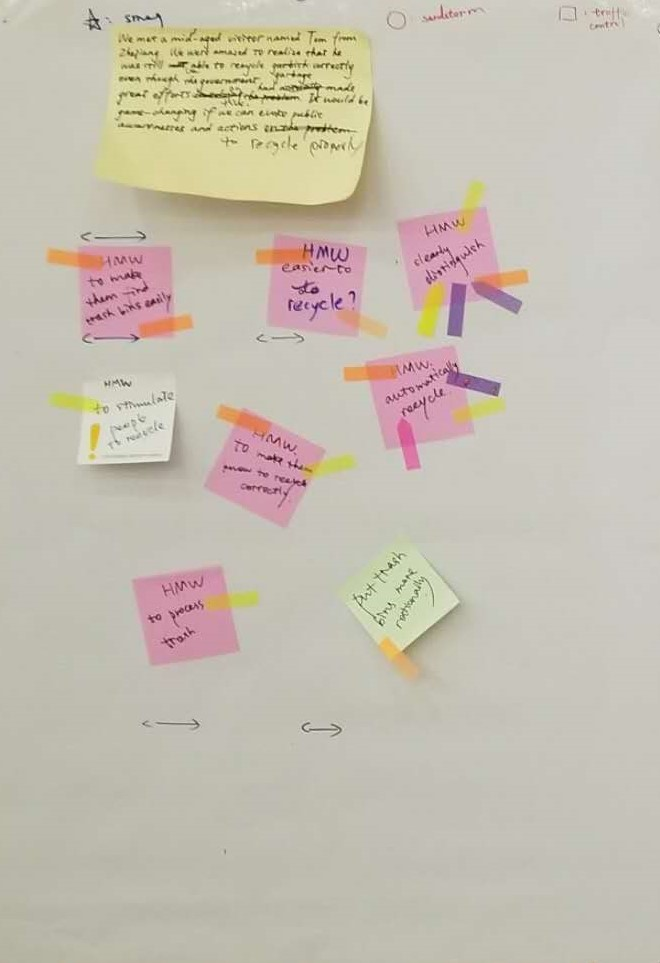 : smog
sandstorm
: traffic
control
We met a mid-aged visitor named Tom from
Zhejiang. We were amazed to realize that he
was still able to recycle garbish correctly
even though the government, garbage
had made
great efforts on this. It would be
game-changing if we can evoke public
awarenesses and actions
to recycle properly
HMW
to make
them find
trash bins easily
HMW
easier to
to
recycle?
HMW
clearly
distinguish
HMW
to stimulate
people
to recycle
!
HMW.
to make them
know to recycle
correctly.
HMW.
automatically
recycle.
HMW
to process
trash
put trash
bins more
rationally